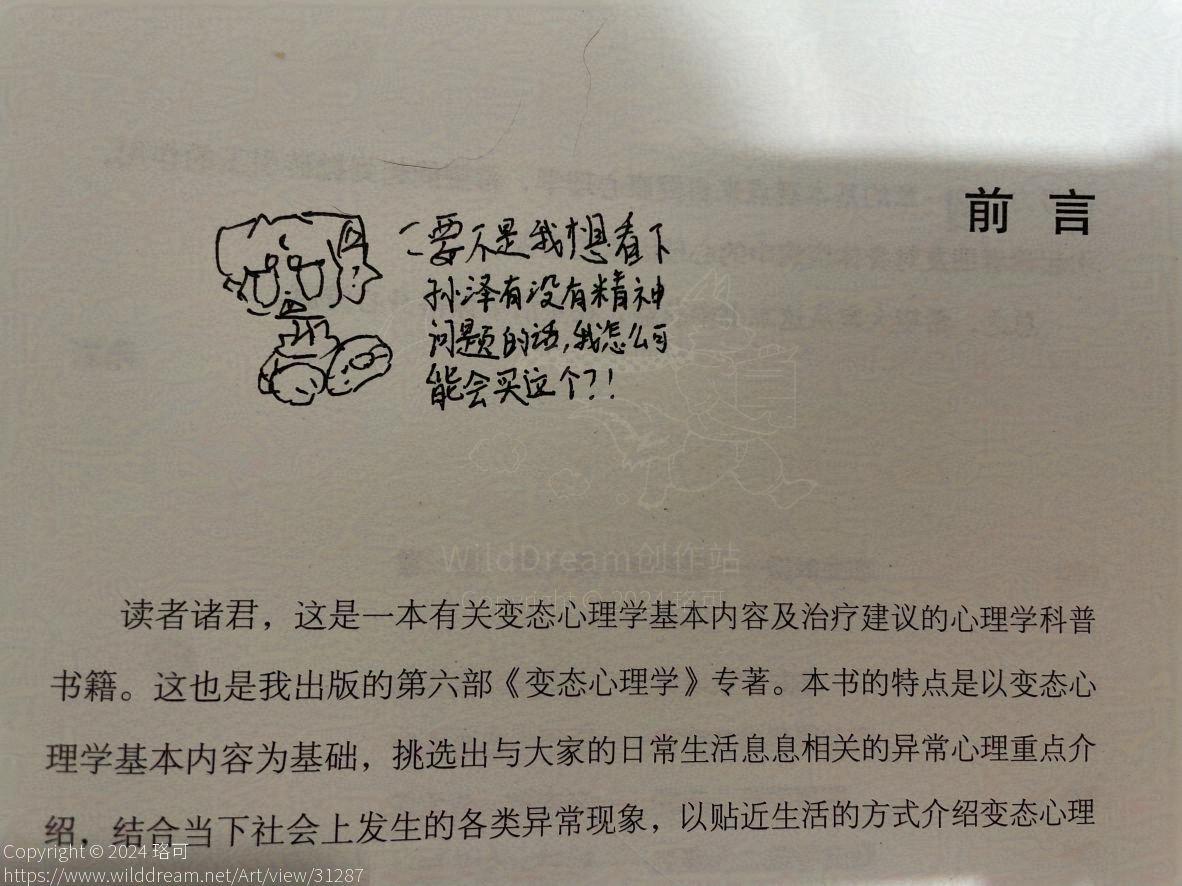 前 言
要不是我想看下
孙泽有没有精神
问题的话,我怎么可
能会买这个?!
WildDream创作站
Copyright © 2024 珞可
读者诸君，这是一本有关变态心理学基本内容及治疗建议的心理学科普
书籍。这也是我出版的第六部《变态心理学》专著。本书的特点是以变态心
理学基本内容为基础，挑选出与大家的日常生活息息相关的异常心理重点介
绍，结合当下社会上发生的各类异常现象，以贴近生活的方式介绍变态心理
Copyright © 2024 珞可
https://www.wilddream.net/Art/view/31287